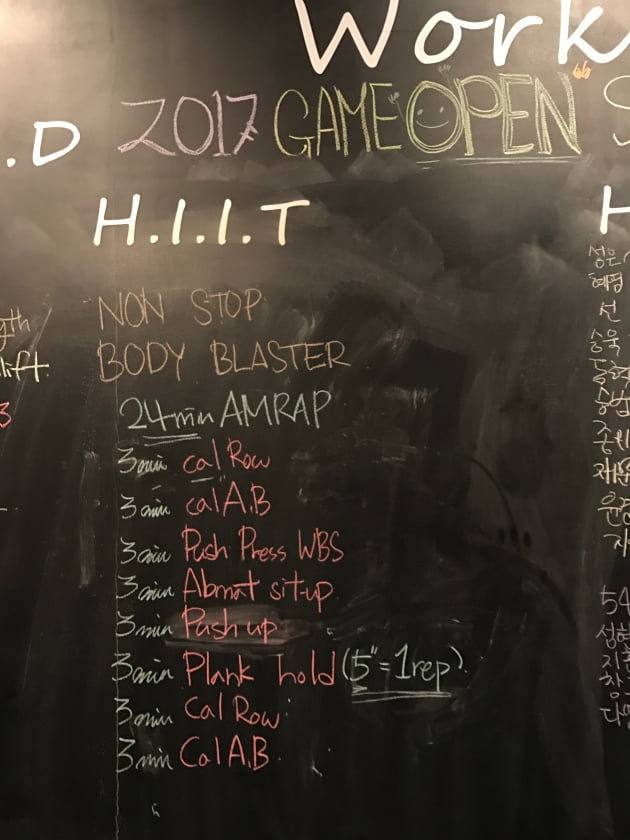 Work
2017 GAME OPEN
.D
H.I.I.T
NON STOP
BODY BLASTER
24min AMRAP
3min Cal Row
3min Cal A.B
3min Push Press WBS
3min Abmat sit-up
3min Push up
3min Plank hold (5"=1rep)
3min Cal Row
3min Cal A.B
lift
3
H
성은
혜정
선
승욱
54
성현